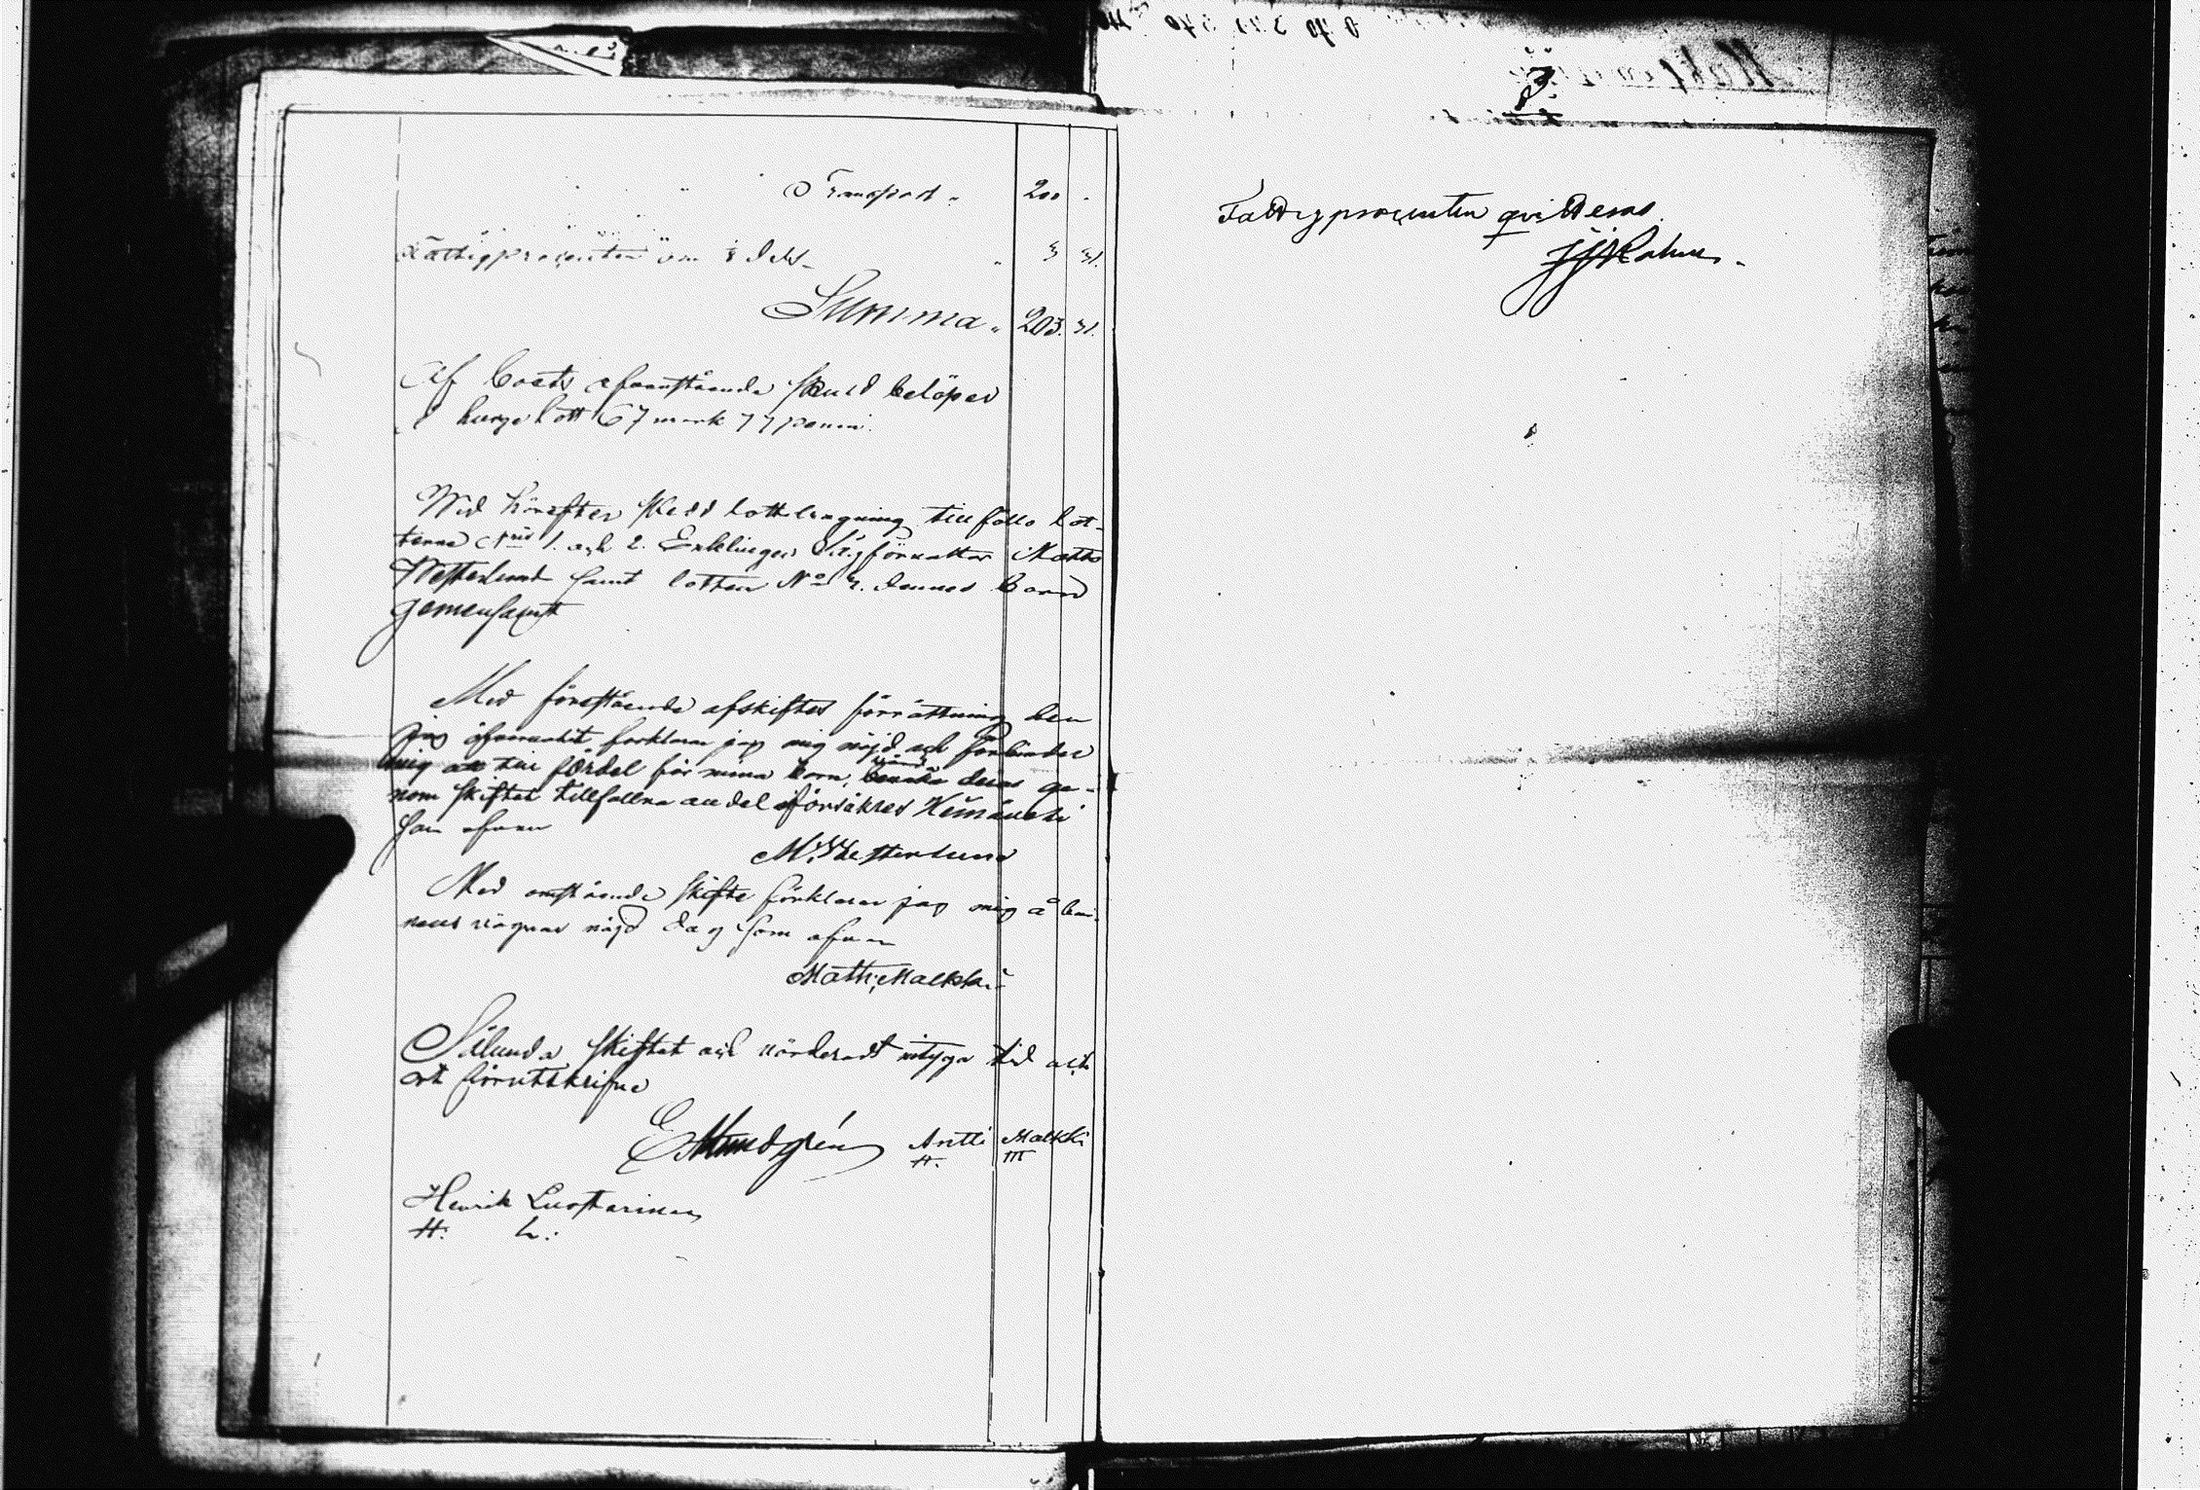 Transport „ 200 -
Fattigprocenten „ 3 31.
Summa „ 203. 31.
Af boets ofvanstående skuld belöper
å hvarje lott 67 mark 77 penni.
Wid härefter skedd lottdragning tillföllo lot-
terne N:ris 1. och 2. Enklingen Matts
Westerlund samt lotten No 3. dennes barn
gemensamt
Med förestående afskiftes förrättning den
jag åhört förklarar jag mig nöjd och förbinder
mig att till fördel för mina barn, deras ge-
nom skiftet tillfallna andel försäkres
som ofvan
M. Westerlund
Med omstående skifte förklarar jag mig å bar-
nens vägnar nöjd dag som ofvan
Matti Malkki
Sålunda skiftat och värderadt intyga tid och
ort förutskrifne
E Lundgrén Antti Malkki
H. m
Henrik Luostarinen
H. L.
Fattigprocenten qvitteras.